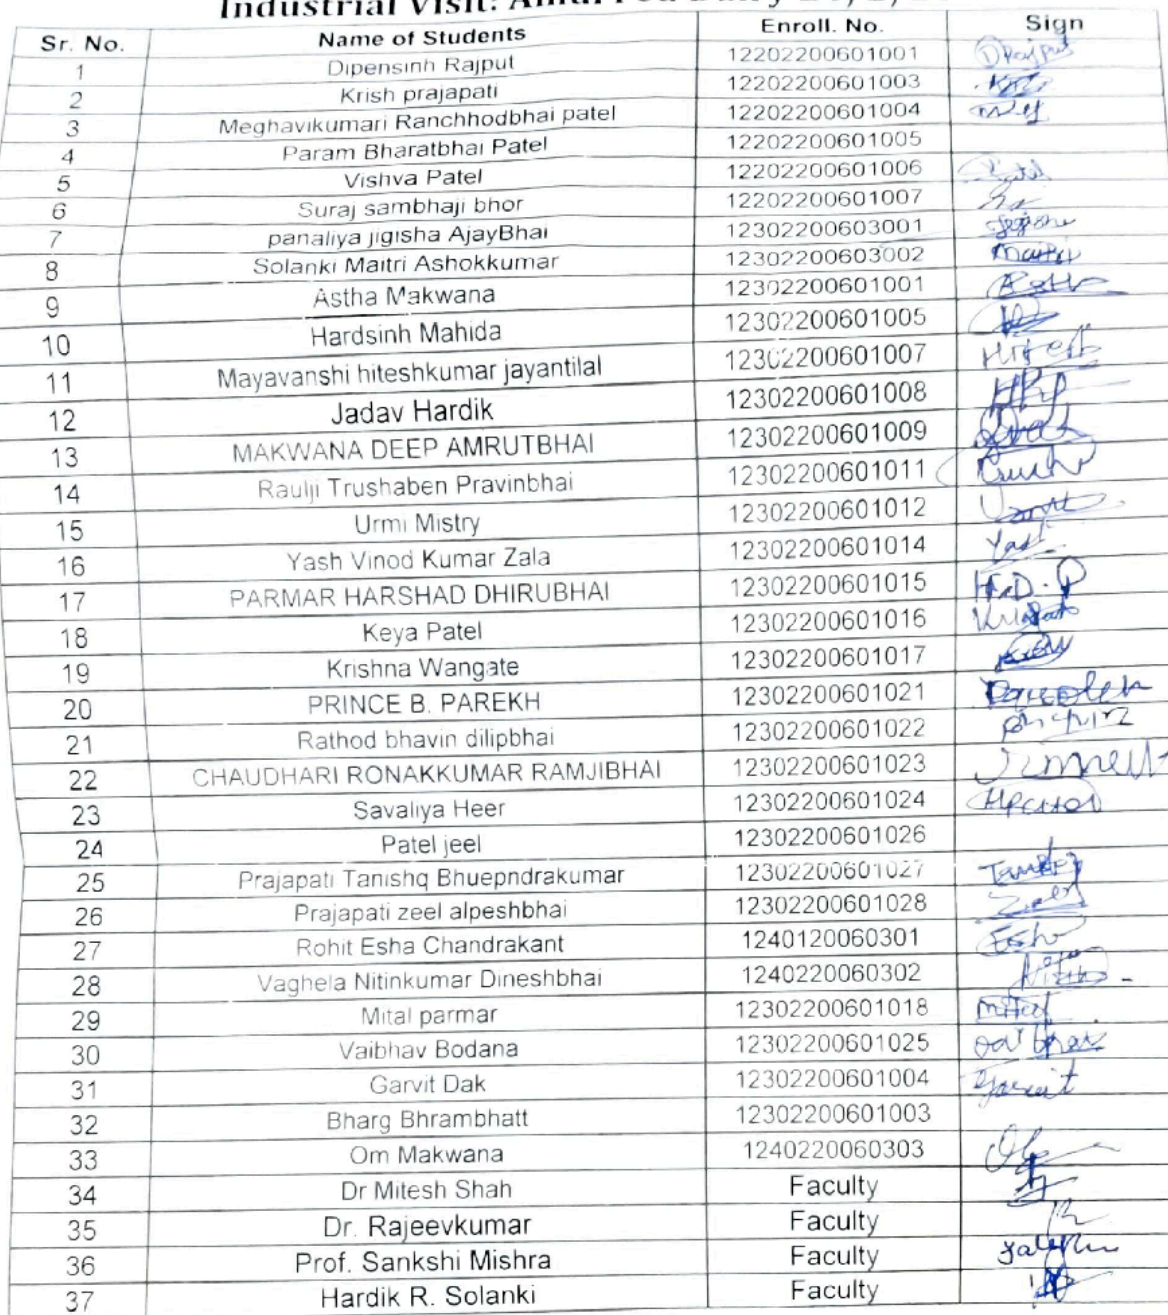 Industrial Visit:
Sr. No. Name of Students Enroll. No. Sign
1 Dipensinh Rajput 12202200601001 DRajput
2 Krish prajapati 12202200601003
3 Meghavikumari Ranchhodbhai patel 12202200601004
4 Param Bharatbhai Patel 12202200601005
5 Vishva Patel 12202200601006
6 Suraj sambhaji bhor 12202200601007
7 panaliya jigisha AjayBhai 12302200603001
8 Solanki Maitri Ashokkumar 12302200603002 Maitri
9 Astha Makwana 12302200601001
10 Hardsinh Mahida 12302200601005
11 Mayavanshi hiteshkumar jayantilal 12302200601007 Hitesh
12 Jadav Hardik 12302200601008
13 MAKWANA DEEP AMRUTBHAI 12302200601009
14 Raulji Trushaben Pravinbhai 12302200601011
15 Urmi Mistry 12302200601012
16 Yash Vinod Kumar Zala 12302200601014 Yash
17 PARMAR HARSHAD DHIRUBHAI 12302200601015 H.D.P
18 Keya Patel 12302200601016
19 Krishna Wangate 12302200601017
20 PRINCE B. PAREKH 12302200601021
21 Rathod bhavin dilipbhai 12302200601022
22 CHAUDHARI RONAKKUMAR RAMJIBHAI 12302200601023
23 Savaliya Heer 12302200601024
24 Patel jeel 12302200601026
25 Prajapati Tanishq Bhuepndrakumar 12302200601027
26 Prajapati zeel alpeshbhai 12302200601028 Zeel
27 Rohit Esha Chandrakant 1240120060301 Esha
28 Vaghela Nitinkumar Dineshbhai 1240220060302
29 Mital parmar 12302200601018 Mital
30 Vaibhav Bodana 12302200601025
31 Garvit Dak 12302200601004 Garvit
32 Bharg Bhrambhatt 12302200601003
33 Om Makwana 1240220060303
34 Dr Mitesh Shah Faculty
35 Dr. Rajeevkumar Faculty
36 Prof. Sankshi Mishra Faculty
37 Hardik R. Solanki Faculty